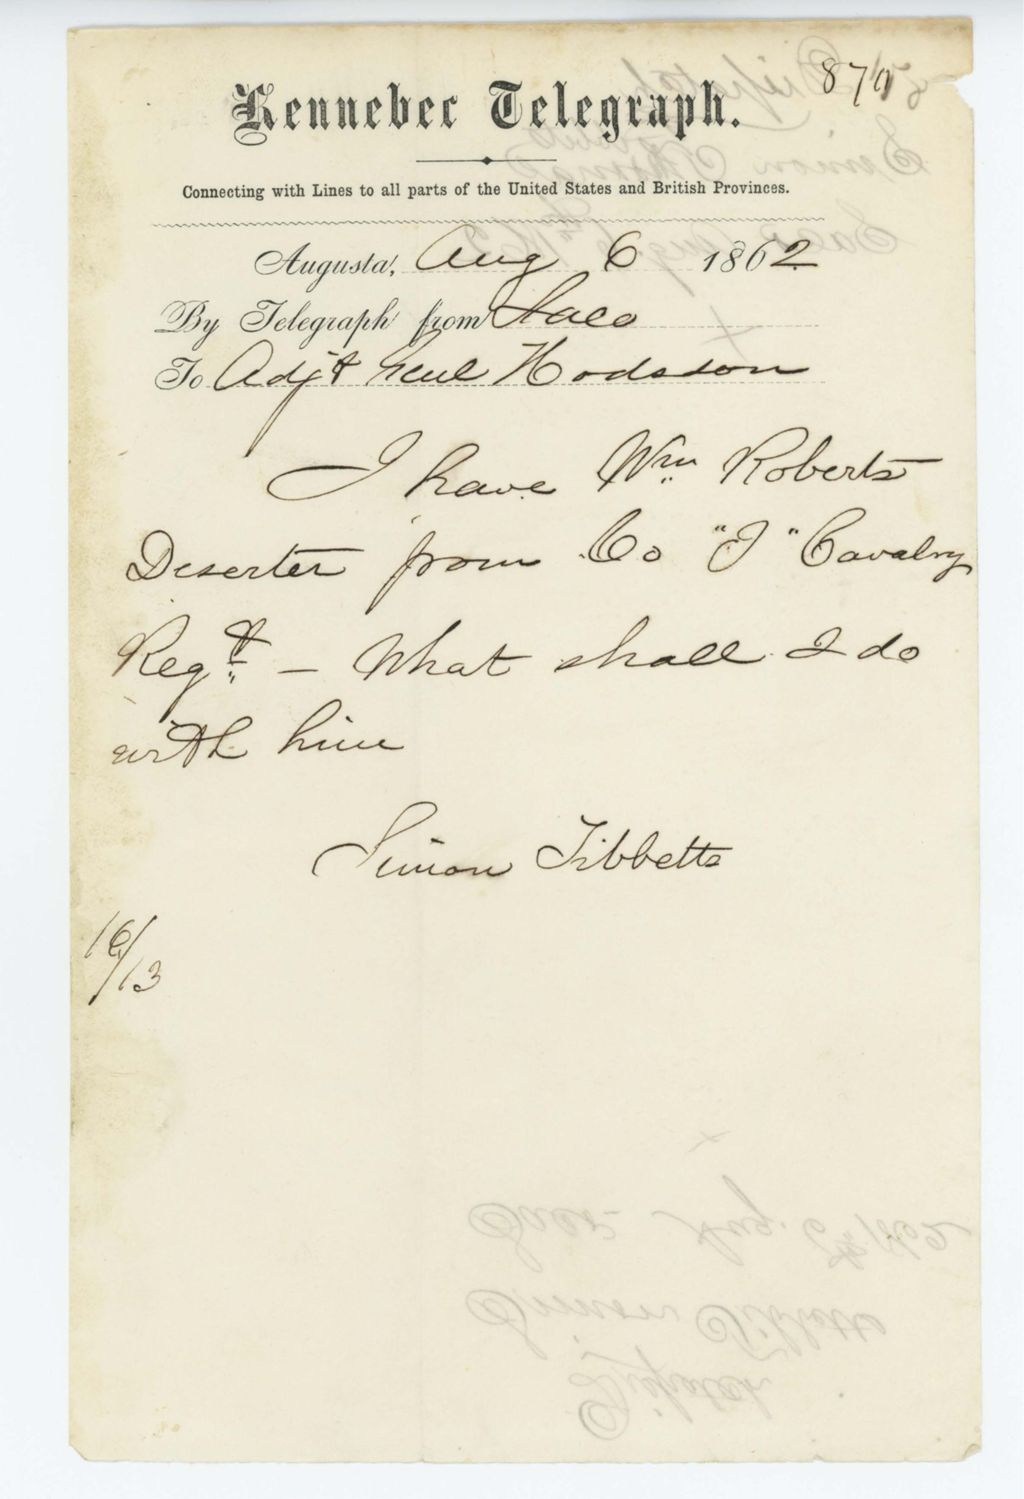 870
Kennebec Telegraph.
Connecting with Lines to all parts of the United States and British Provinces.
Augusta, Aug 6 1862
By Telegraph from Saco
To Adjt Genl Hodsdon
I have Wm Roberts
Deserter from Co "I" Cavalry
Regt - What shall I do
with him
Simon Tibbetts
16/13